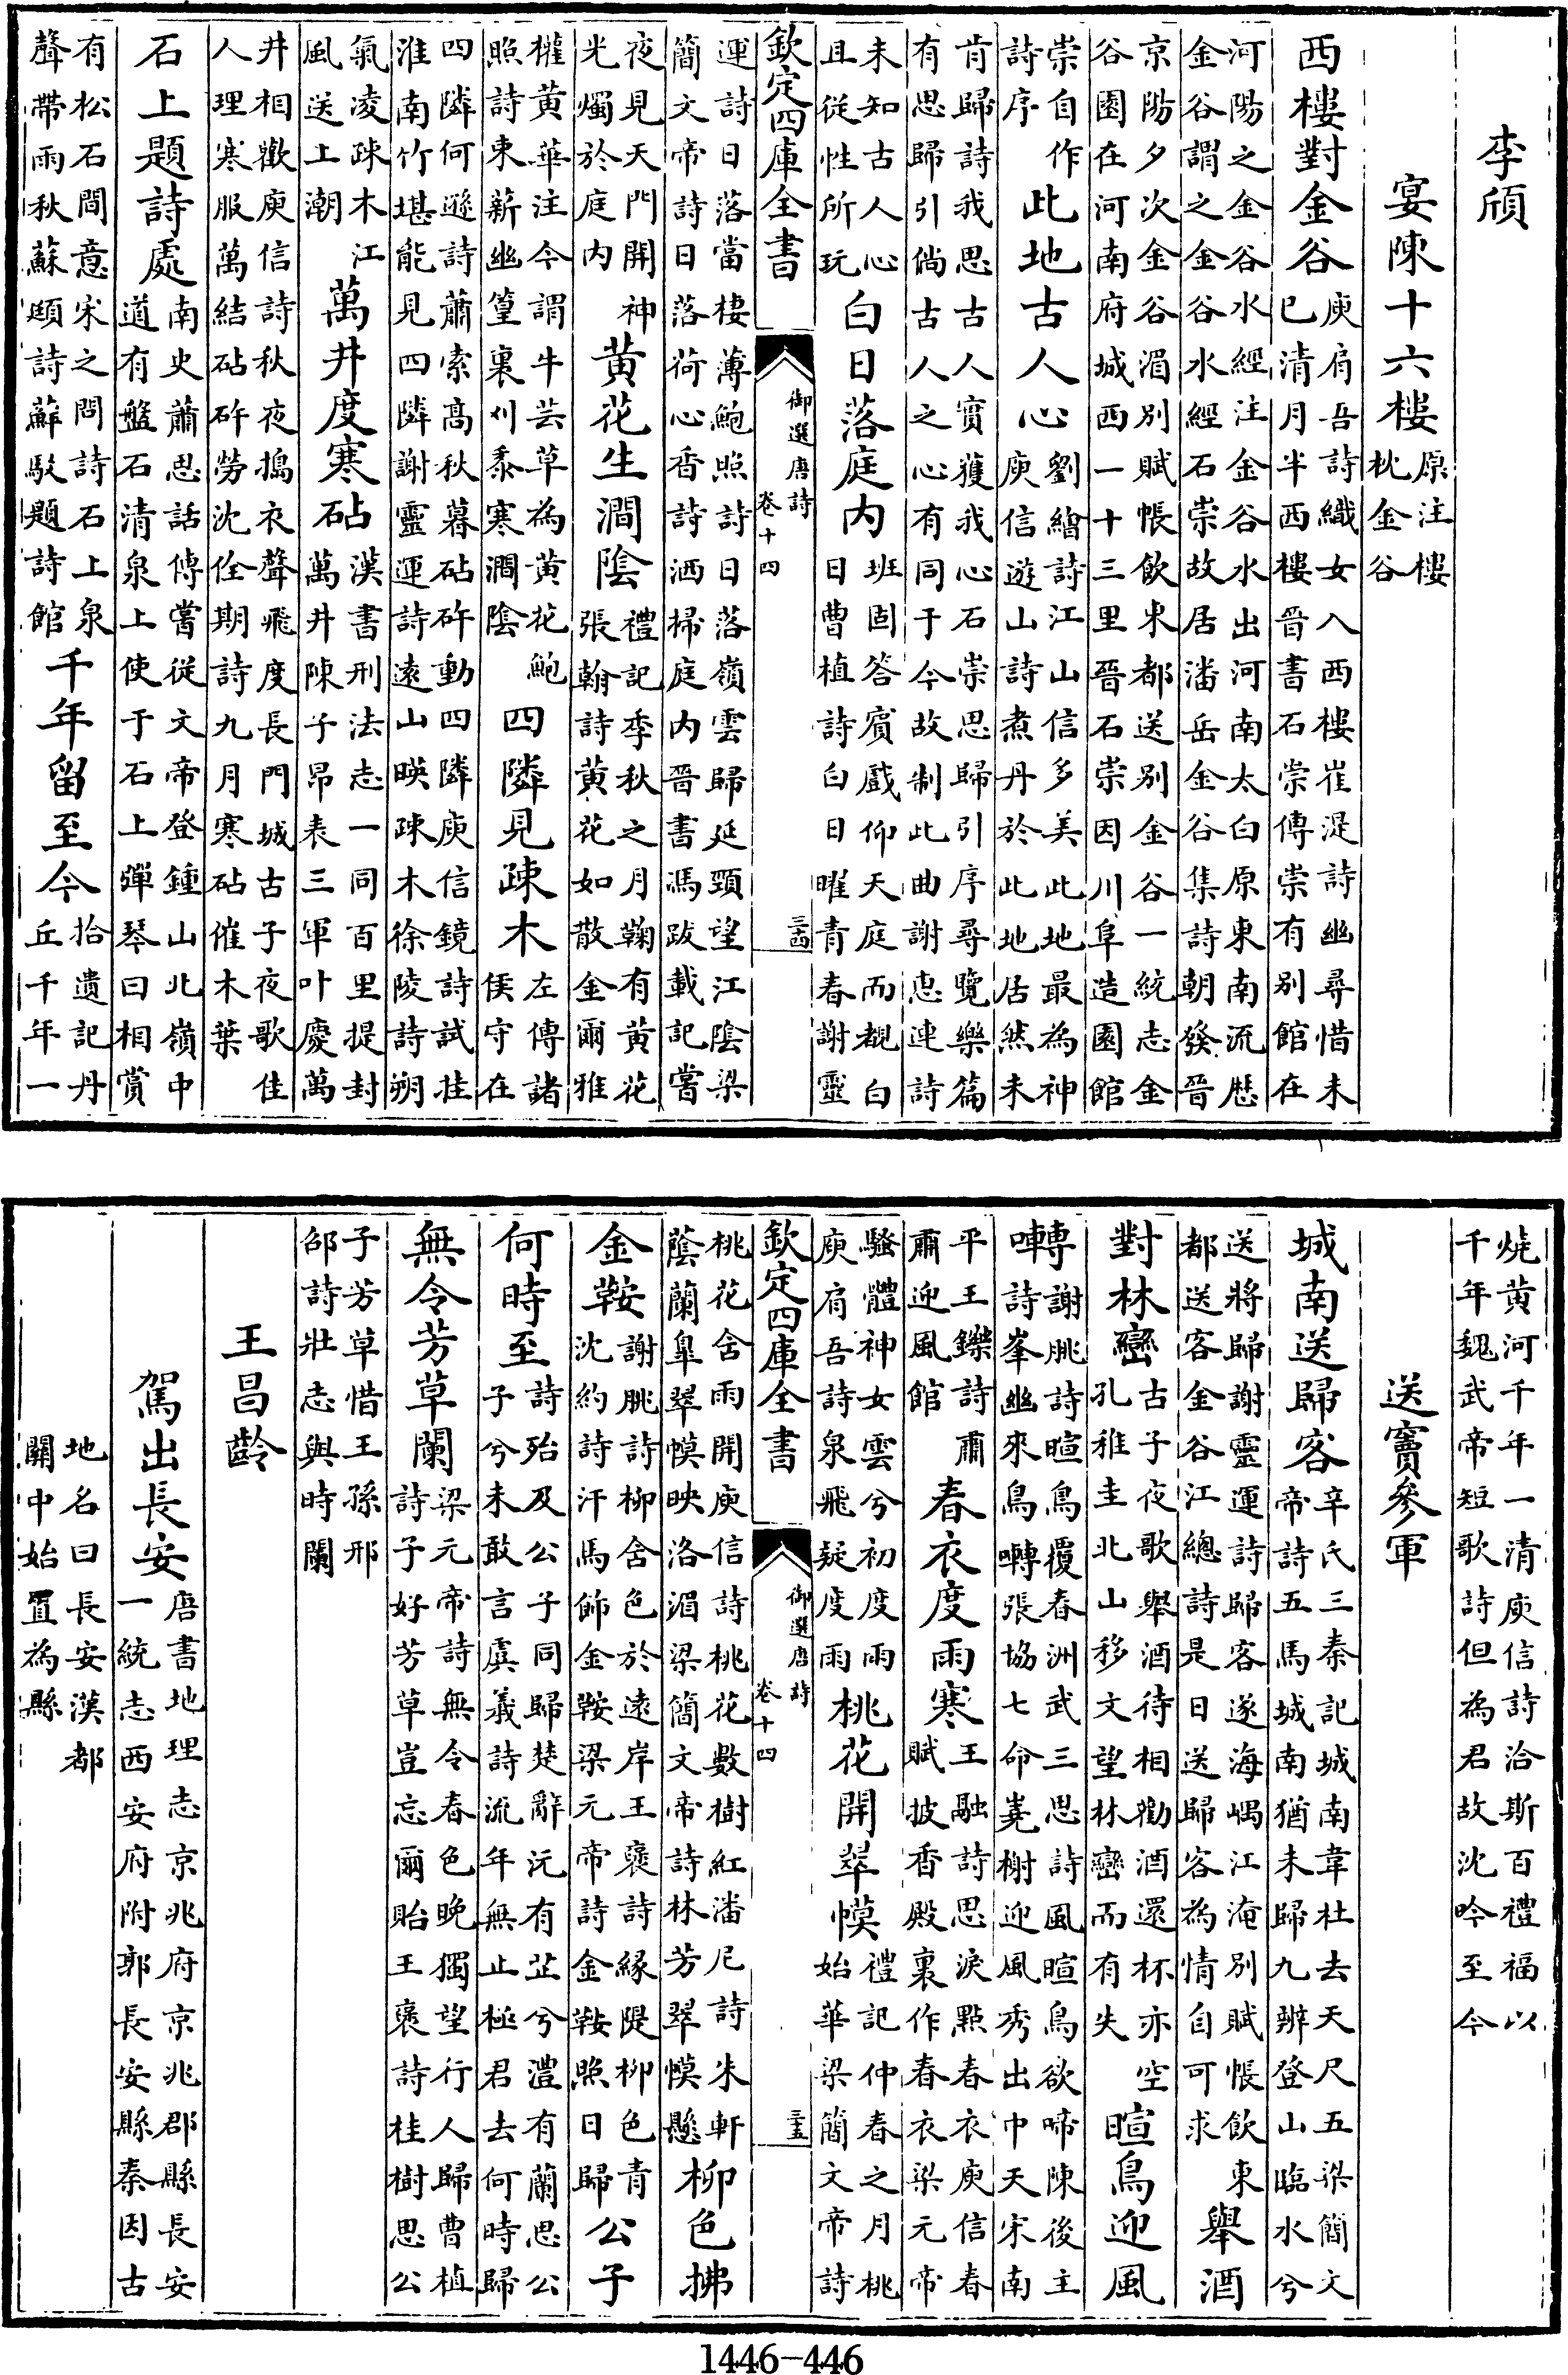 李頎
宴陳十六樓原注樓枕金谷
西樓對金谷庾肩吾詩織女入西樓崔湜詩幽尋惜未已清月半西樓晉書石崇傳崇有別館在
河陽之金谷水經注金谷水出河南太白原東南流厯金谷謂之金谷水經石崇故居潘岳金谷集詩朝發晉
京陽夕次金谷湄別賦帳飲東都送別金谷一統志金谷園在河南府城西一十三里晉石崇因川阜造園館
崇自作詩序此地古人心劉繪詩江山信多美此地最為神庾信遊山詩煮丹於此地居然未
肯歸詩我思古人實獲我心石崇思歸引序尋覽樂篇有思歸引倘古人之心有同于今故制此曲謝惠連詩
未知古人心且從性所玩白日落庭内班固答賓戲仰天庭而覩白日曹植詩白日曜青春謝靈
欽定四庫全書 御選唐詩 卷十四 三十四
運詩日落當棲薄鮑照詩日落嶺雲歸延頸望江陰梁簡文帝詩日落荷心香詩洒掃庭内晉書馮跋載記嘗
夜見天門開神光燭於庭内黄花生澗陰禮記季秋之月鞠有黄花張翰詩黄花如散金爾雅
權黄華注今謂牛芸草為黄花鮑照詩束薪幽篁裏刈黍寒澗陰四隣見疎木左傳諸侯守在
四隣何遜詩蕭索髙秋暮砧砕動四隣庾信鏡詩試挂淮南竹堪能見四隣謝靈運詩遠山暎疎木徐陵詩朔
氣凌疎木江風送上潮萬井度寒砧漢書刑法志一同百里提封萬井陳子昂表三軍叶慶萬
井相歡庾信詩秋夜擣衣聲飛度長門城古子夜歌佳人理寒服萬結砧砕勞沈佺期詩九月寒砧催木葉
石上題詩處南史蕭思話傳嘗從文帝登鍾山北嶺中道有盤石清泉上使于石上彈琴曰相賞
有松石間意宋之問詩石上泉聲帶雨秋蘇頲詩蘚駮題詩館千年留至今拾遺記丹丘千年一
燒黄河千年一清庾信詩洽斯百禮福以千年魏武帝短歌詩但為君故沈吟至今
送竇參軍
城南送歸客辛氏三秦記城南韋杜去天尺五梁簡文帝詩五馬城南猶未歸九辨登山臨水兮
送將歸謝靈運詩歸客遂海嵎江淹別賦帳飲東都送客金谷江總詩是日送歸客為情自可求舉酒
對林巒古子夜歌舉酒待相勸酒還杯亦空孔稚圭北山移文望林巒而有失暄鳥迎風
囀謝朓詩暄鳥覆春洲武三思詩風暄鳥欲啼陳後主詩峯幽來鳥囀張協七命嶤榭迎風秀出中天宋南
平王鑠詩肅肅迎風館春衣度雨寒王融詩思淚點春衣庾信春賦披香殿裏作春衣梁元帝
騷體神女雲兮初度雨庾肩吾詩泉飛疑度雨桃花開翠幙禮記仲春之月桃始華梁簡文帝詩
欽定四庫全書 御選唐詩 卷十四 三十五
桃花含雨開庾信詩桃花數樹紅潘尼詩朱軒蔭蘭臯翠幙映洛湄梁簡文帝詩林芳翠幙懸柳色拂
金鞍謝朓詩柳含色於遠岸王襃詩緣隄柳色青沈約詩汗馬飾金鞍梁元帝詩金鞍照日歸公子
何時至詩殆及公子同歸楚辭沅有芷兮澧有蘭思公子兮未敢言虞羲詩流年無止極君去何時歸
無令芳草闌梁元帝詩無令春色晚獨望行人歸曹植詩子好芳草豈忘爾貽王襃詩桂樹思公
子芳草惜王孫邢邵詩壯志與時闌
王昌齡
駕出長安唐書地理志京兆府京兆郡縣長安一統志西安府附郭長安縣秦因古
地名曰長安漢都關中始置為縣
1446-446